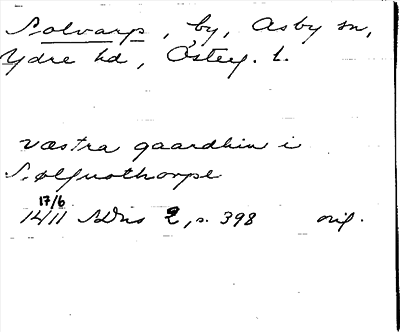 Solvarp, by, Asby sn,
Ydre hd,Österg. L.
væstra gaardhin i
Sølfusthorpe
17/6
1411 SDns 2, s. 398 orig.